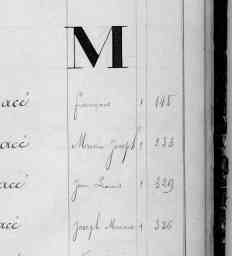 M
acé François 1 145
acé Marie Joseph 1 233
acé Jean Louis 1 329
acé Joseph Marie 1 326